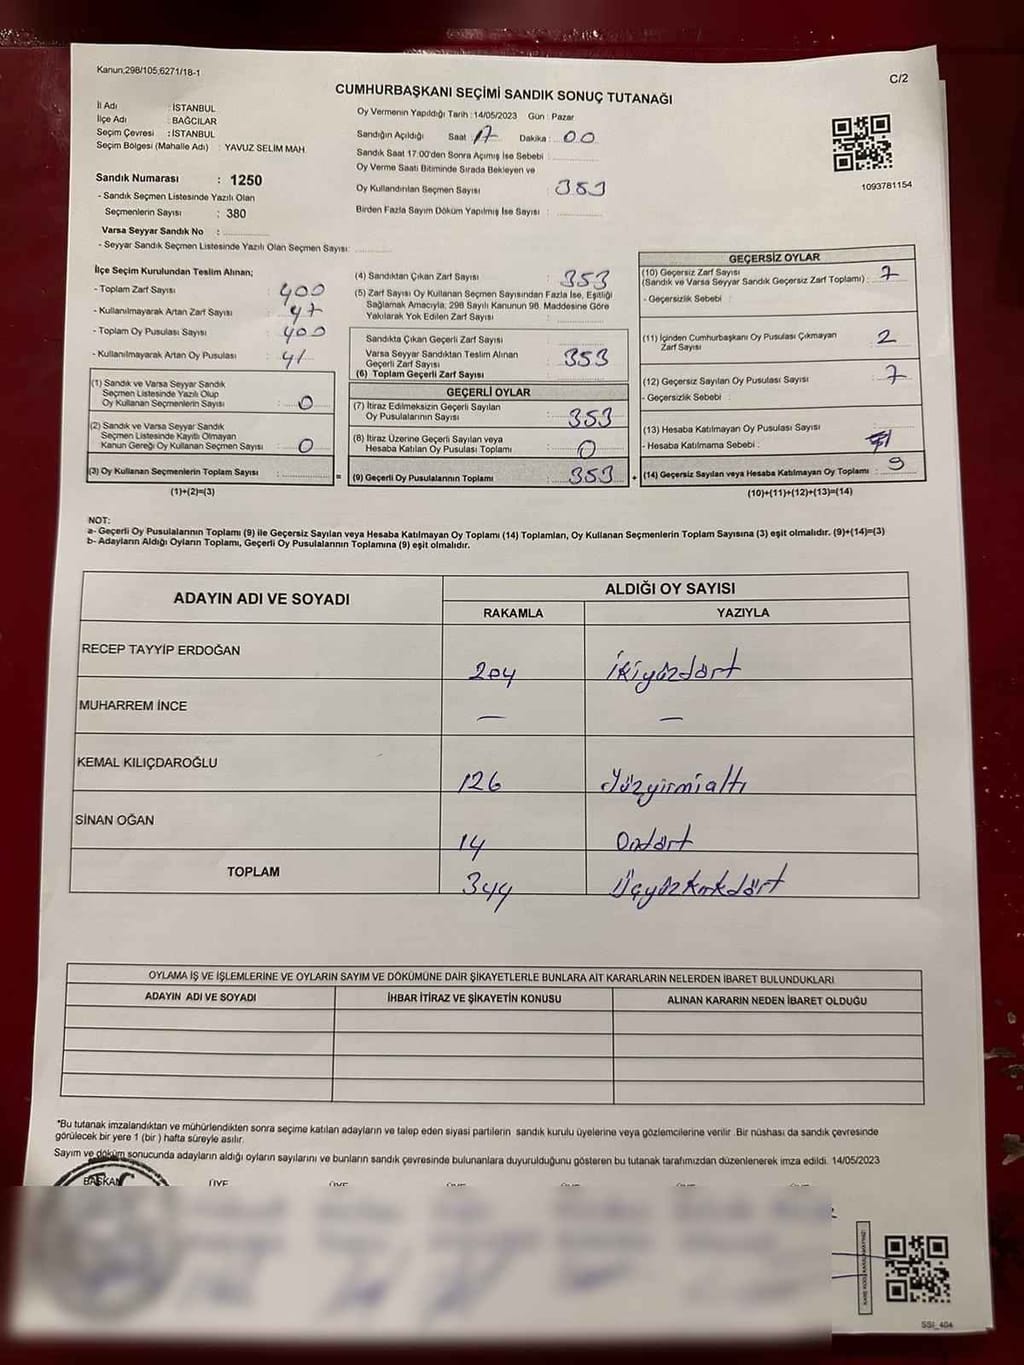 Kanun;298/105;6271/18-1
C/2
CUMHURBAŞKANI SEÇİMİ SANDIK SONUÇ TUTANAĞI
İl Adı : İSTANBUL
İlçe Adı : BAĞCILAR
Seçim Çevresi : İSTANBUL
Seçim Bölgesi (Mahalle Adı) : YAVUZ SELİM MAH.
Sandık Numarası : 1250
- Sandık Seçmen Listesinde Yazılı Olan
Seçmenlerin Sayısı : 380
Varsa Seyyar Sandık No :
- Seyyar Sandık Seçmen Listesinde Yazılı Olan Seçmen Sayısı:
Oy Vermenin Yapıldığı Tarih : 14/05/2023 Gün : Pazar
Sandığın Açıldığı Saat : 17 Dakika : 00
Sandık Saat 17:00'den Sonra Açımış İse Sebebi :
Oy Verme Saati Bitiminde Sırada Bekleyen ve
Oy Kullandırılan Seçmen Sayısı : 353
Birden Fazla Sayım Döküm Yapılmış İse Sayısı :
1093781154
İlçe Seçim Kurulundan Teslim Alınan;
- Toplam Zarf Sayısı : 400
- Kullanılmayarak Artan Zarf Sayısı : 47
- Toplam Oy Pusulası Sayısı : 400
- Kullanılmayarak Artan Oy Pusulası : 41
(1) Sandık ve Varsa Seyyar Sandık
Seçmen Listesinde Yazılı Olup
Oy Kullanan Seçmenlerin Sayısı : 0
(2) Sandık ve Varsa Seyyar Sandık
Seçmen Listesinde Kayıtlı Olmayan
Kanun Gereği Oy Kullanan Seçmen Sayısı : 0
(3) Oy Kullanan Seçmenlerin Toplam Sayısı :
(1)+(2)=(3)
=
(4) Sandıktan Çıkan Zarf Sayısı : 353
(5) Zarf Sayısı Oy Kullanan Seçmen Sayısından Fazla İse, Eşitliği
Sağlamak Amacıyla; 298 Sayılı Kanunun 98. Maddesine Göre
Yakılarak Yok Edilen Zarf Sayısı :
Sandıkta Çıkan Geçerli Zarf Sayısı :
Varsa Seyyar Sandıktan Teslim Alınan
Geçerli Zarf Sayısı : 353
(6) Toplam Geçerli Zarf Sayısı :
GEÇERLİ OYLAR
(7) İtiraz Edilmeksizin Geçerli Sayılan
Oy Pusulalarının Sayısı : 353
(8) İtiraz Üzerine Geçerli Sayılan veya
Hesaba Katılan Oy Pusulası Toplamı : 0
(9) Geçerli Oy Pusulalarının Toplamı : 353
+
GEÇERSİZ OYLAR
(10) Geçersiz Zarf Sayısı
(Sandık ve Varsa Seyyar Sandık Geçersiz Zarf Toplamı) : 7
- Geçersizlik Sebebi :
(11) İçinden Cumhurbaşkanı Oy Pusulası Çıkmayan
Zarf Sayısı : 2
(12) Geçersiz Sayılan Oy Pusulası Sayısı : 7
- Geçersizlik Sebebi :
(13) Hesaba Katılmayan Oy Pusulası Sayısı :
- Hesaba Katılmama Sebebi :
(14) Geçersiz Sayılan veya Hesaba Katılmayan Oy Toplamı : 9
(10)+(11)+(12)+(13)=(14)
NOT:
a- Geçerli Oy Pusulalarının Toplamı (9) ile Geçersiz Sayılan veya Hesaba Katılmayan Oy Toplamı (14) Toplamları, Oy Kullanan Seçmenlerin Toplam Sayısına (3) eşit olmalıdır. (9)+(14)=(3)
b- Adayların Aldığı Oyların Toplamı, Geçerli Oy Pusulalarının Toplamına (9) eşit olmalıdır.
ADAYIN ADI VE SOYADI
ALDIĞI OY SAYISI
RAKAMLA YAZIYLA
RECEP TAYYİP ERDOĞAN 204 İkiyüzdört
MUHARREM İNCE — —
KEMAL KILIÇDAROĞLU 126 Yüzyirmialtı
SİNAN OĞAN 14 Ondört
TOPLAM 344 Üçyüzkırkdört
OYLAMA İŞ VE İŞLEMLERİNE VE OYLARIN SAYIM VE DÖKÜMÜNE DAİR ŞİKAYETLERLE BUNLARA AİT KARARLARIN NELERDEN İBARET BULUNDUKLARI
ADAYIN ADI VE SOYADI İHBAR İTİRAZ VE ŞİKAYETİN KONUSU ALINAN KARARIN NEDEN İBARET OLDUĞU
*Bu tutanak imzalandıktan ve mühürlendikten sonra seçime katılan adayların ve talep eden siyasi partilerin sandık kurulu üyelerine veya gözlemcilerine verilir .Bir nüshası da sandık çevresinde
görülecek bir yere 1 (bir ) hafta süreyle asılır.
Sayım ve döküm sonucunda adayların aldığı oyların sayılarını ve bunların sandık çevresinde bulunanlara duyurulduğunu gösteren bu tutanak tarafımızdan düzenlenerek imza edildi. 14/05/2023
BAŞKAN ÜYE ÜYE ÜYE ÜYE ÜYE ÜYE
SSI_404